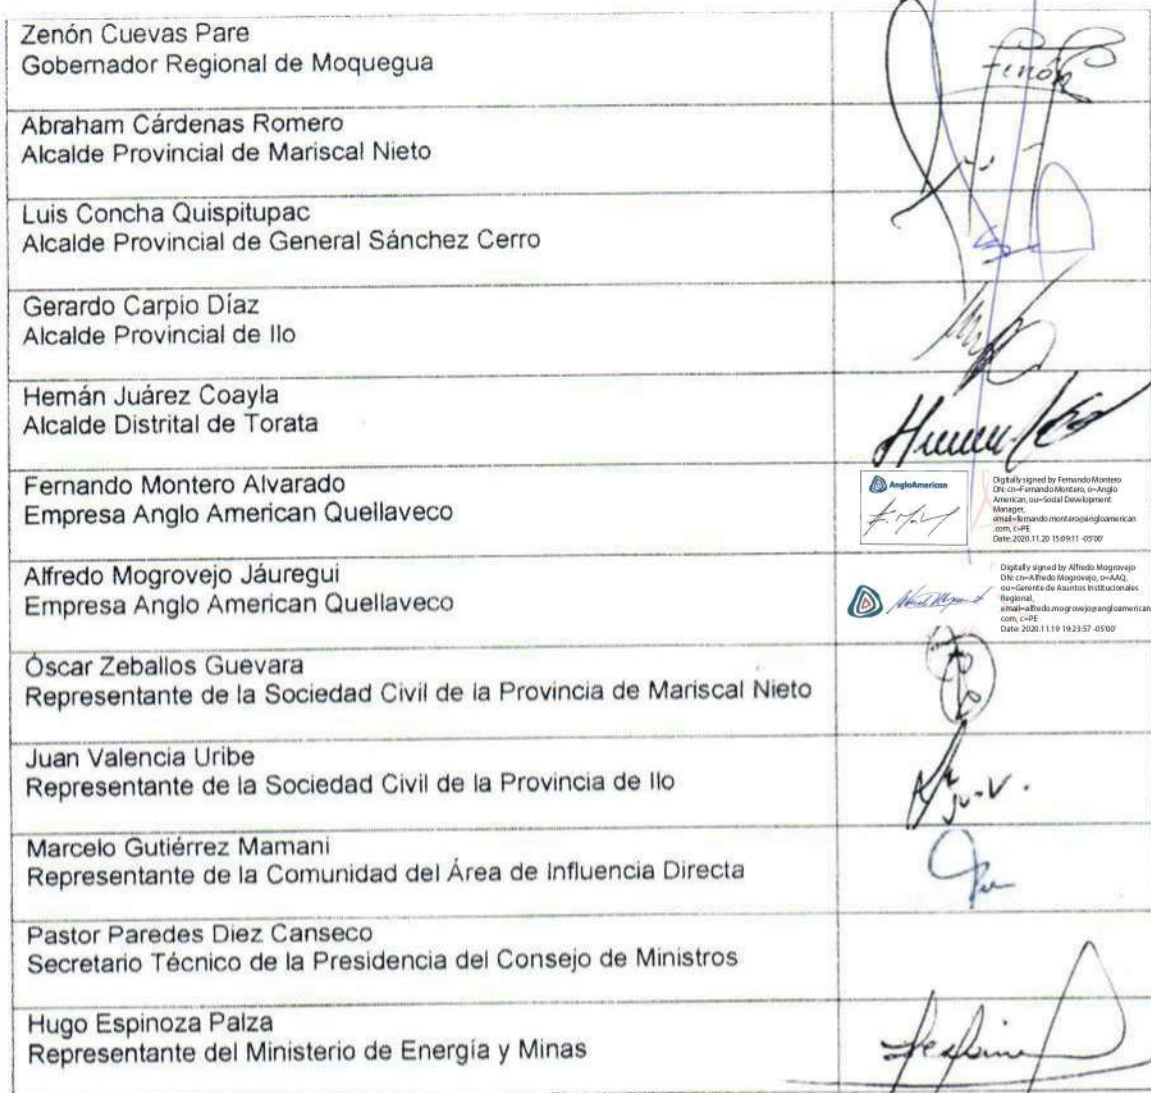 Zenón Cuevas Pare
Gobernador Regional de Moquegua
Zenón
Abraham Cárdenas Romero
Alcalde Provincial de Mariscal Nieto
Luis Concha Quispitupac
Alcalde Provincial de General Sánchez Cerro
Gerardo Carpio Díaz
Alcalde Provincial de Ilo
Hernán Juárez Coayla
Alcalde Distrital de Torata
Fernando Montero Alvarado
Empresa Anglo American Quellaveco
AngloAmerican
Digitally signed by Fernando Montero
DN: cn=Fernando Montero, o=Anglo
American, ou=Social Development
Manager,
email=fernando.montero@angloamerican
.com, c=PE
Date: 2020.11.20 15:09:11 -05'00'
Alfredo Mogrovejo Jáuregui
Empresa Anglo American Quellaveco
Digitally signed by Alfredo Mogrovejo
DN: cn=Alfredo Mogrovejo, o=AAQ,
ou=Gerente de Asuntos Institucionales
Regional,
email=alfredo.mogrovejo@angloamerican.
com, c=PE
Date: 2020.11.19 19:23:57 -05'00'
Óscar Zeballos Guevara
Representante de la Sociedad Civil de la Provincia de Mariscal Nieto
Juan Valencia Uribe
Representante de la Sociedad Civil de la Provincia de Ilo
Marcelo Gutiérrez Mamani
Representante de la Comunidad del Área de Influencia Directa
Pastor Paredes Diez Canseco
Secretario Técnico de la Presidencia del Consejo de Ministros
Hugo Espinoza Palza
Representante del Ministerio de Energía y Minas